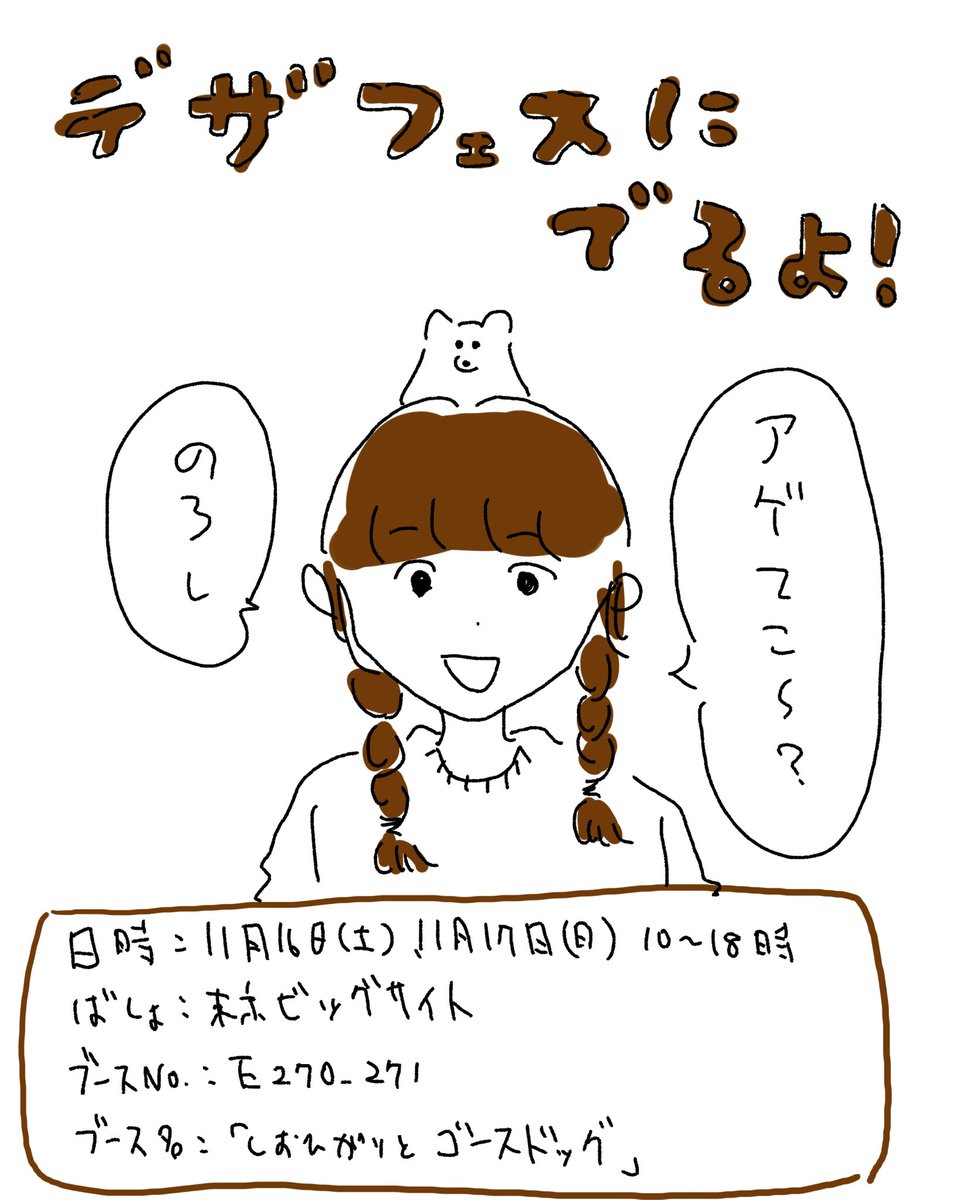 デザフェスに
でるよ!
アゲてこ〜?
のろし
日時:11月16日(土)、11月17日(日) 10〜18時
ばしょ:東京ビッグサイト
ブースNo.:E270_271
ブース名:「しおひがりと ゴースドッグ」